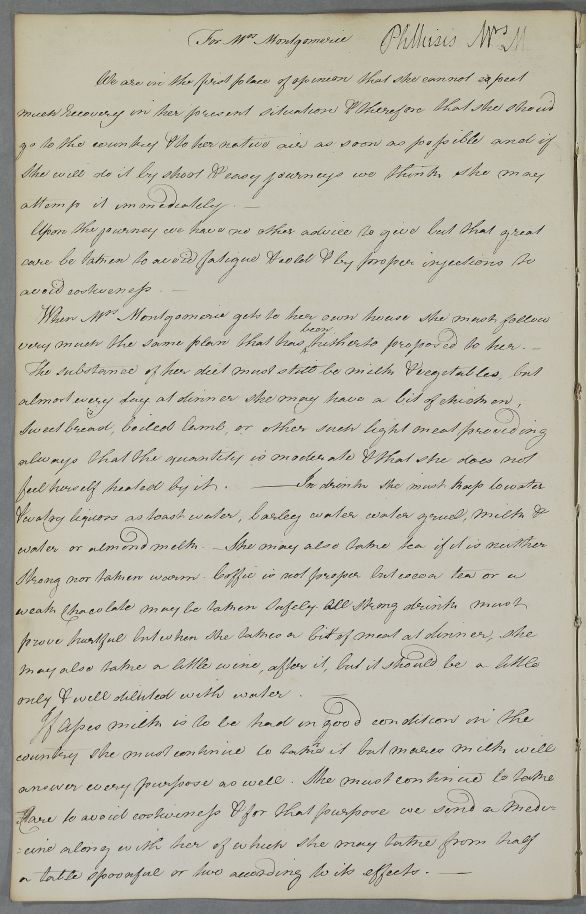 For Mrs Montgomerie Phthisis Mrs M
We are in the first place of opinion that she cannot expect
much Recovery in her present situation & therefore that she should
go to the country & to her native air as soon as possible and if
she will do it by short & easy journeys we think she may
attemp it immediately. —
Upon the journey we have no other advice to give but that great
care be taken to avoid fatigue & cold & by proper injections to
avoid costiveness. —
When Mrs Montgomerie gets to her own house she must follow
very much the same plan that has been hitherto proposed to her. —
The substance of her diet must still be milk & vegetables, but
almost every day at dinner she may have a bit of chicken,
sweetbread, boiled lamb, or other such light meat providing
always that the quantity is moderate & that she does not
feel herself heated by it. — In drink she must keep to water
& watry liquors as toast water, barley water water gruel, milk &
water or almond milk. — She may also take tea if it is neither
strong nor taken warm. Coffie is not proper but cocoa tea or a
weak Chacolate may be taken safely. All strong drink must
prove hurtful but when she takes a bit of meat at dinner, she
may also take a little wine, after it, but it should be a little
only & well diluted with water. —
If Asses milk is to be had in good condition in the
country she must continue to take it but mares milk will
answer every purpose as well. She must continue to take
Care to avoid costiveness & for that purpose we send a medi-
-cine along with her of which she may take from half
a table spoonful or two according to its effects. —